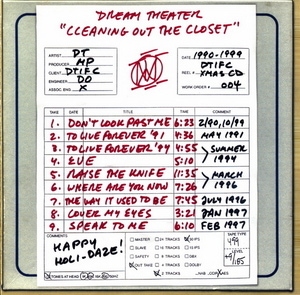 DREAM THEATER
"CLEANING OUT THE CLOSET"
ARTIST DT
PRODUCER MP
CLIENT DTIFC
ENGINEER DO
ASSOC. ENG X
DATE 1990-1999
DTIFC
REEL # XMAS CD
WORK ORDER # 004
TAKE DATE TITLE TIME COMMENT
1. DON'T LOOK PAST ME 6:23 2/90, 10/99
2. TO LIVE FOREVER '91 4:36 MAY 1991
3. TO LIVE FOREVER '94 4:55 SUMMER
4. EVE 5:10 1994
5. RAISE THE KNIFE 11:35 MARCH
6. WHERE ARE YOU NOW 7:26 1996
7. THE WAY IT USED TO BE 7:45 JULY 1996
8. COVER MY EYES 3:21 JAN 1997
9. SPEAK TO ME 6:10 FEB 1997
COMMENTS
HAPPY
HOLI-DAZE!
MASTER 24 TRACKS 30 IPS
SLAVE 16 TRACKS 15 IPS
SAFETY 8 TRACKS DBX
OUT TAKE 4 TRACKS DOLBY
TAPE TYPE
499
LEVEL
+9/
TONES AT HEAD